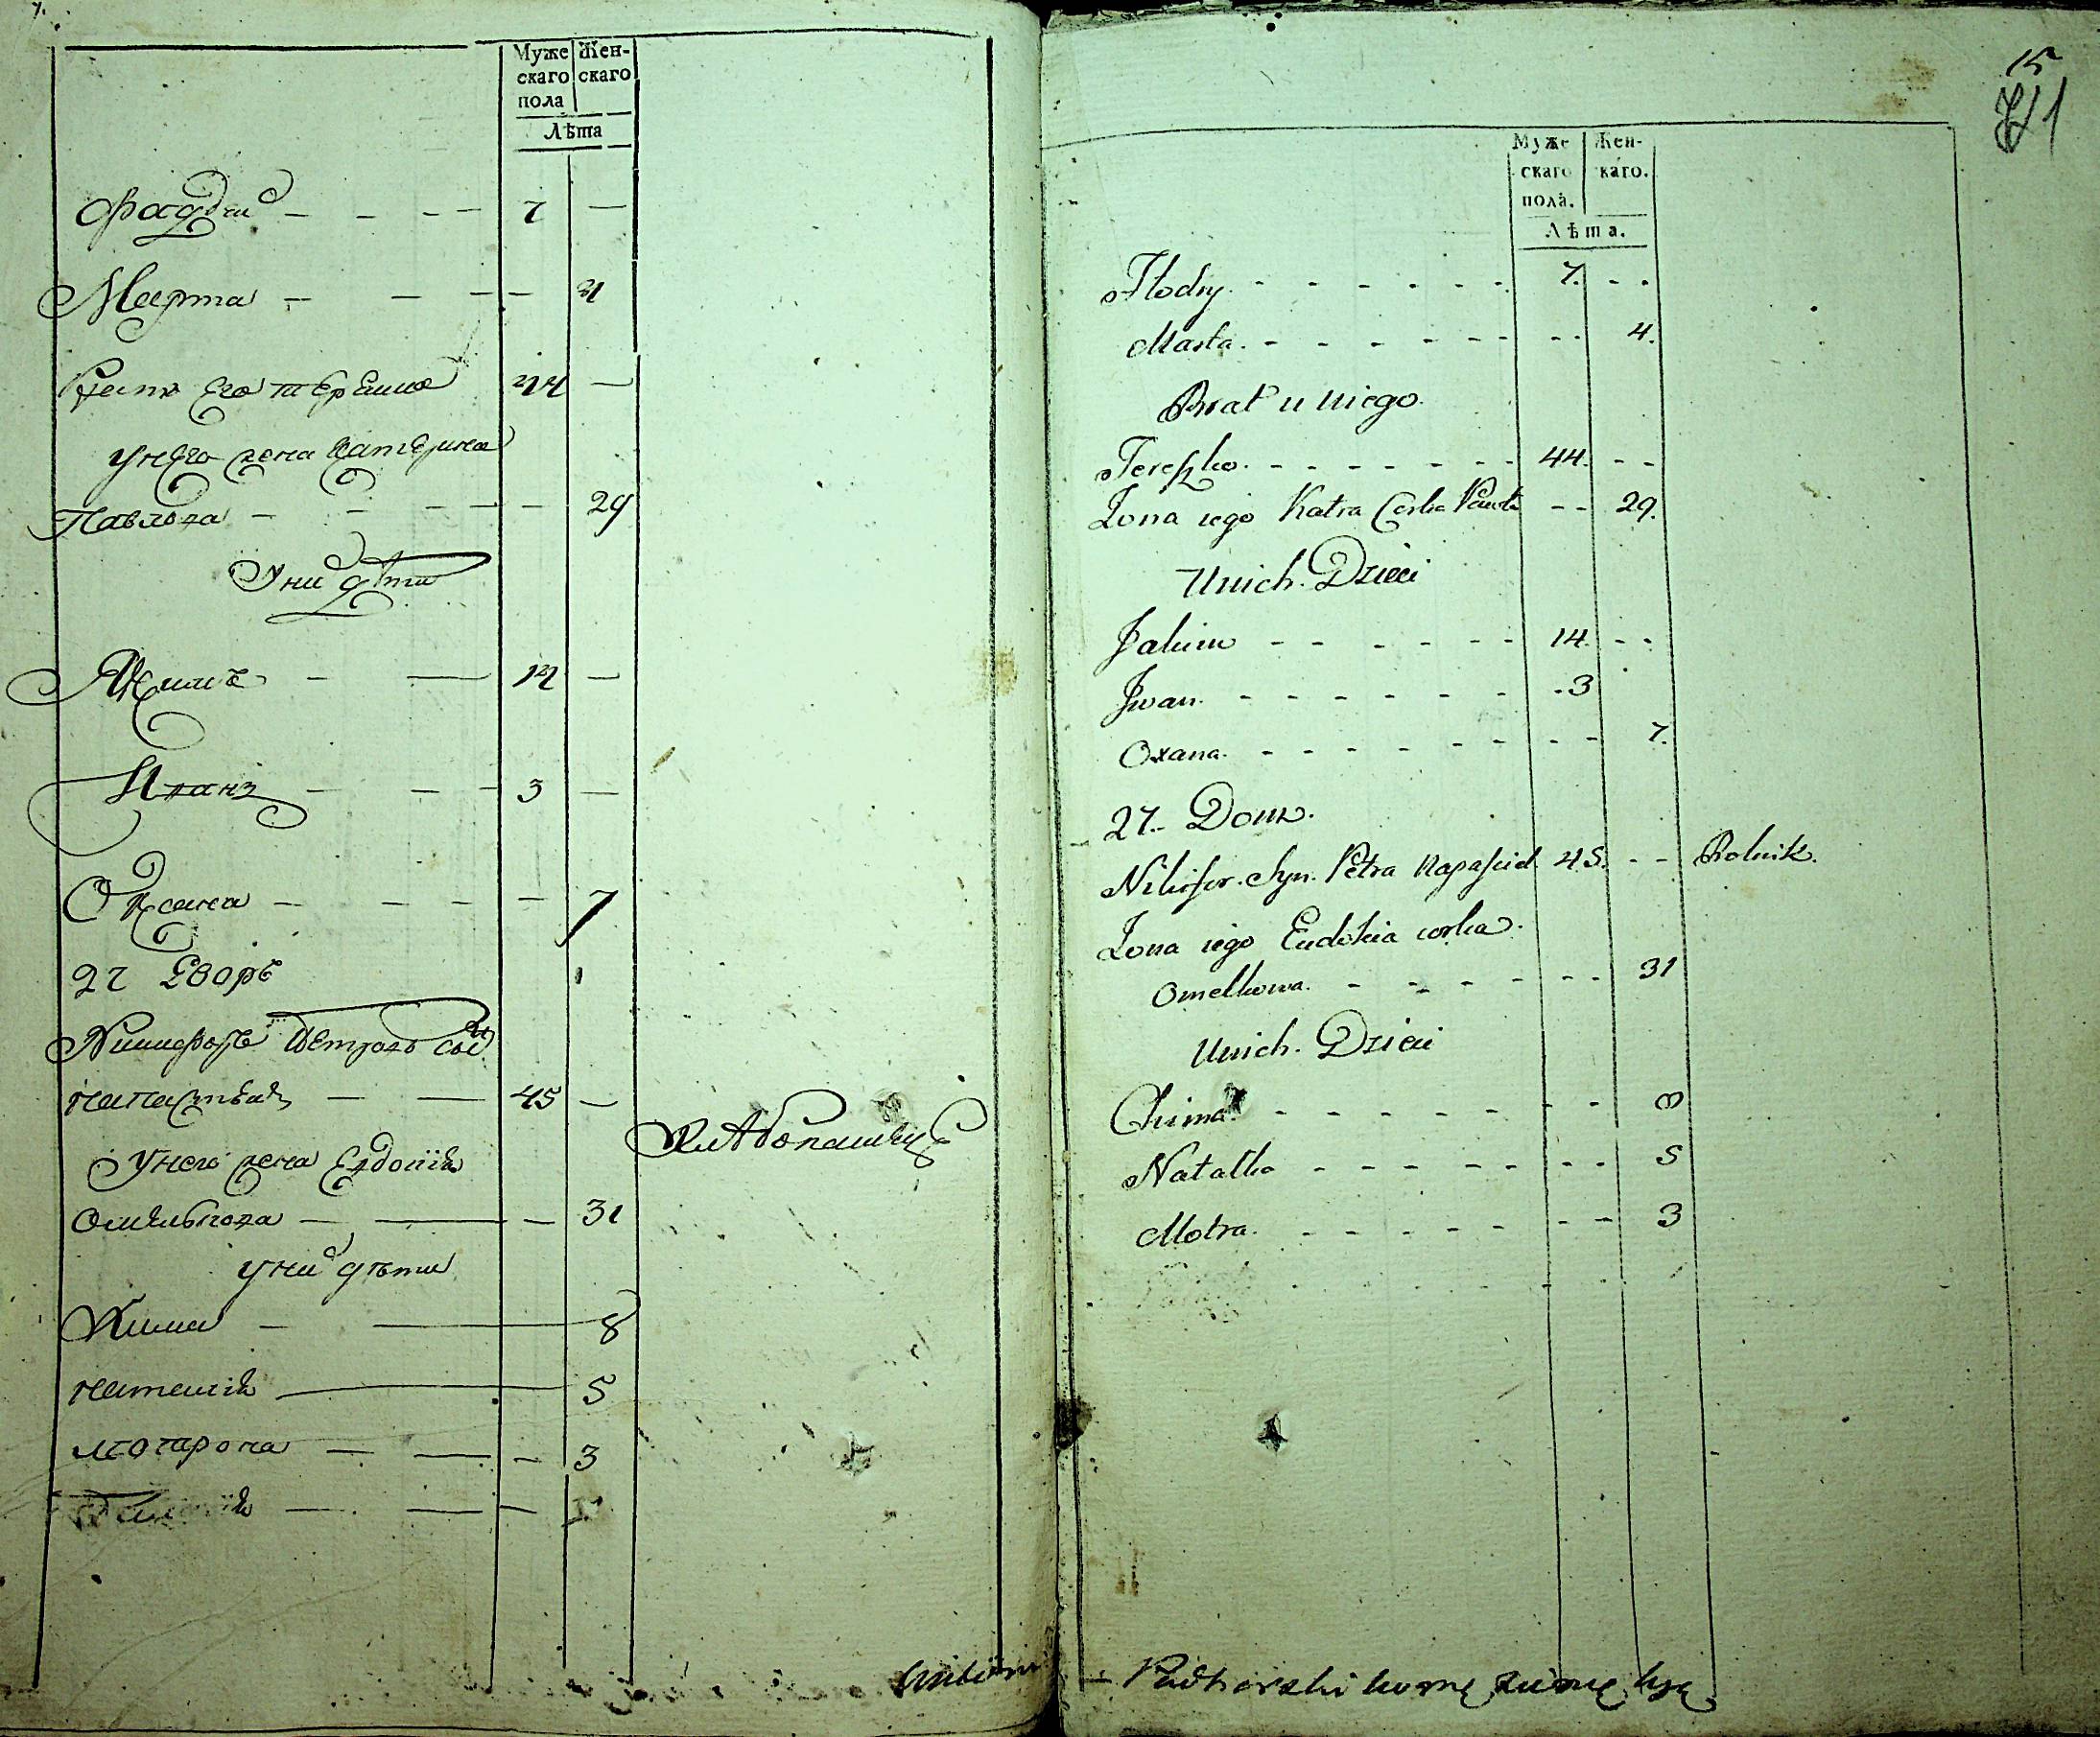 Муже Жен-
скаго скаго
пола
Лѣта
Фадѣй — — — 7 —
Марта — — — — 4
братъ Его терешко 44 —
унего жена катерина
Павлова — — — — 29
Уних дѣти
Якимъ — — 14 —
Иванъ — — — 3 —
Оксана — — — — 7
27 Дворъ
Никифоръ Петровъ сынъ
Напасѣдъ — — 45 —
Хлѣбопашецъ
Унего жена Евдокія
Омелькова — — — 31
уних дѣти
Хима — — 8
наталія — 5
мотрона — — — 3
15
Муже Жен-
скаго каго.
пола.
Лѣта.
Hodry. - - - - - - 7. - -
Marta. - - - - - - - - 4.
Brat u niego.
Tereszko. - - - - - - - 44. - -
Zona iego Katra Corka Pawła - - 29.
Unich. Dzieci
Jakim - - - - - - 14. - -
Iwan. - - - - - - - 3
Oxana. - - - - - - - - - 7.
27.- Dom.
Nikifor. Syn. Petra Napasiid. 45. - - Rolnik.
Zona iego Eudokia corka.
Omelkowa. - - - - - - 31
Unich. Dzieci
Chima. - - - - - - - - 8
Natalka - - - - - - - - 5
Motra. - - - - - - - 3